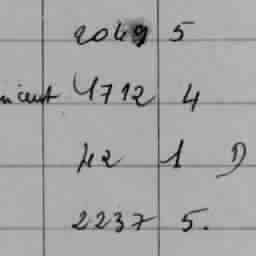 2049 5
4712 4
42 1 D
2237 5.